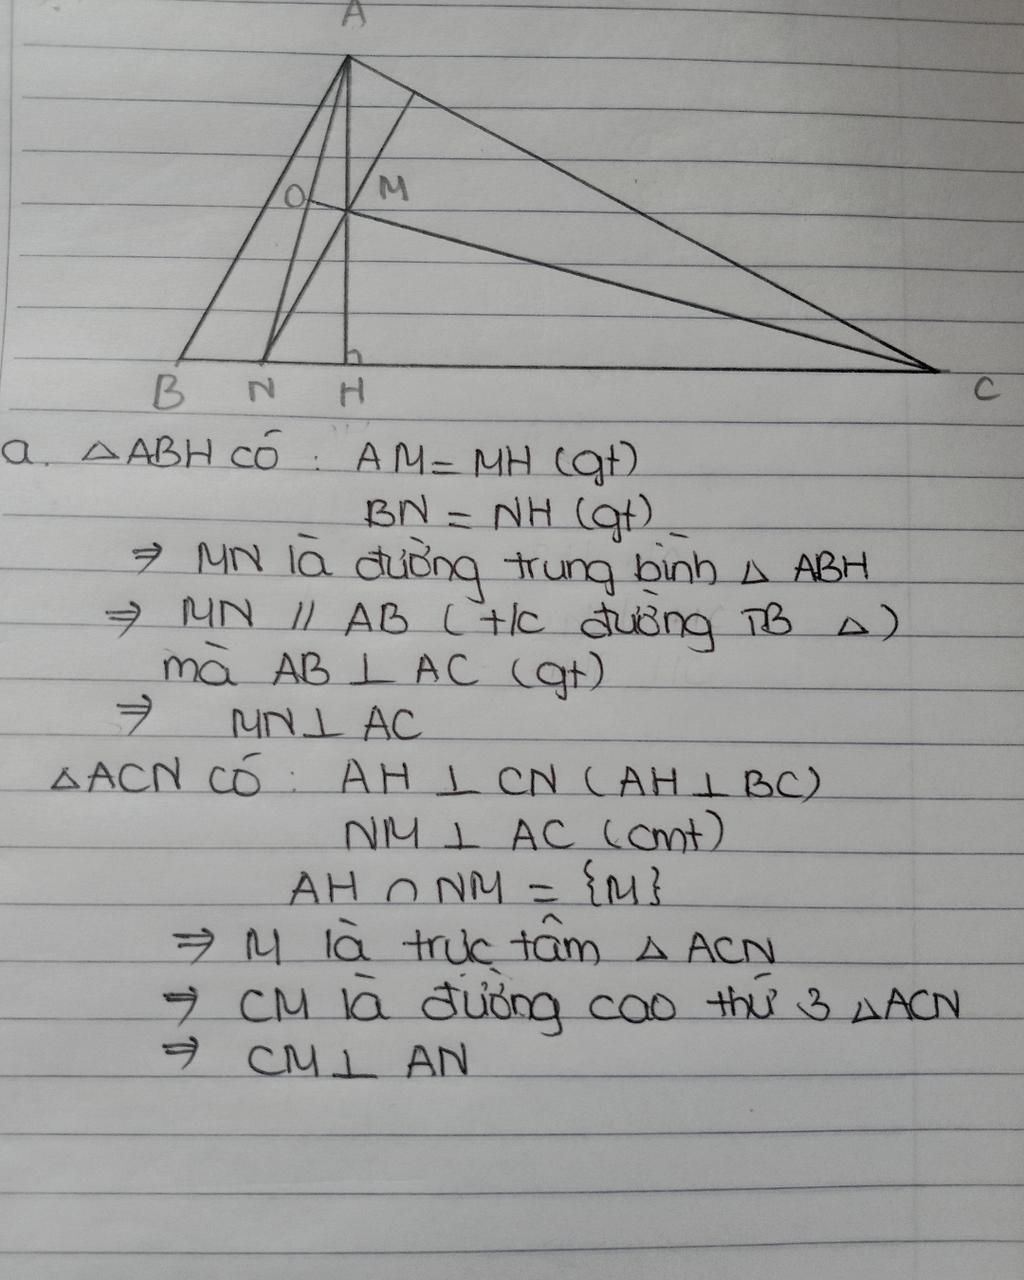 A
O
M
B N H C
a. △ABH có : AM = MH (gt)
BN = NH (gt)
⇒ MN là đường trung bình △ ABH
⇒ MN // AB ( t/c đường TB △)
mà AB ⊥ AC (gt)
⇒ MN ⊥ AC
△ACN có : AH ⊥ CN (AH ⊥ BC)
NM ⊥ AC (cmt)
AH ∩ NM = {M}
⇒ M là trực tâm △ ACN
⇒ CM là đường cao thứ 3 △ACN
⇒ CM ⊥ AN